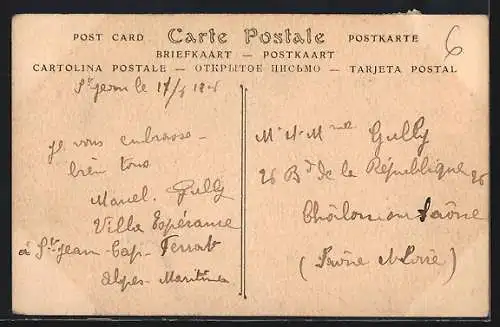 POST CARD Carte Postale POSTKARTE
BRIEFKAART — POSTKAART
CARTOLINA POSTALE — ОТКРЫТОЕ ПИСЬМО — TARJETA POSTAL
6
St Jean le 17/
je vous embrasse
bien tous
Marcel. Gully
Villa Espérance
à St-Jean-Cap-Ferrat
Alpes-Maritimes
Mr & Mme Gully
26 Bd de la République 26
Châlon sur Saône
(Saône & Loire)